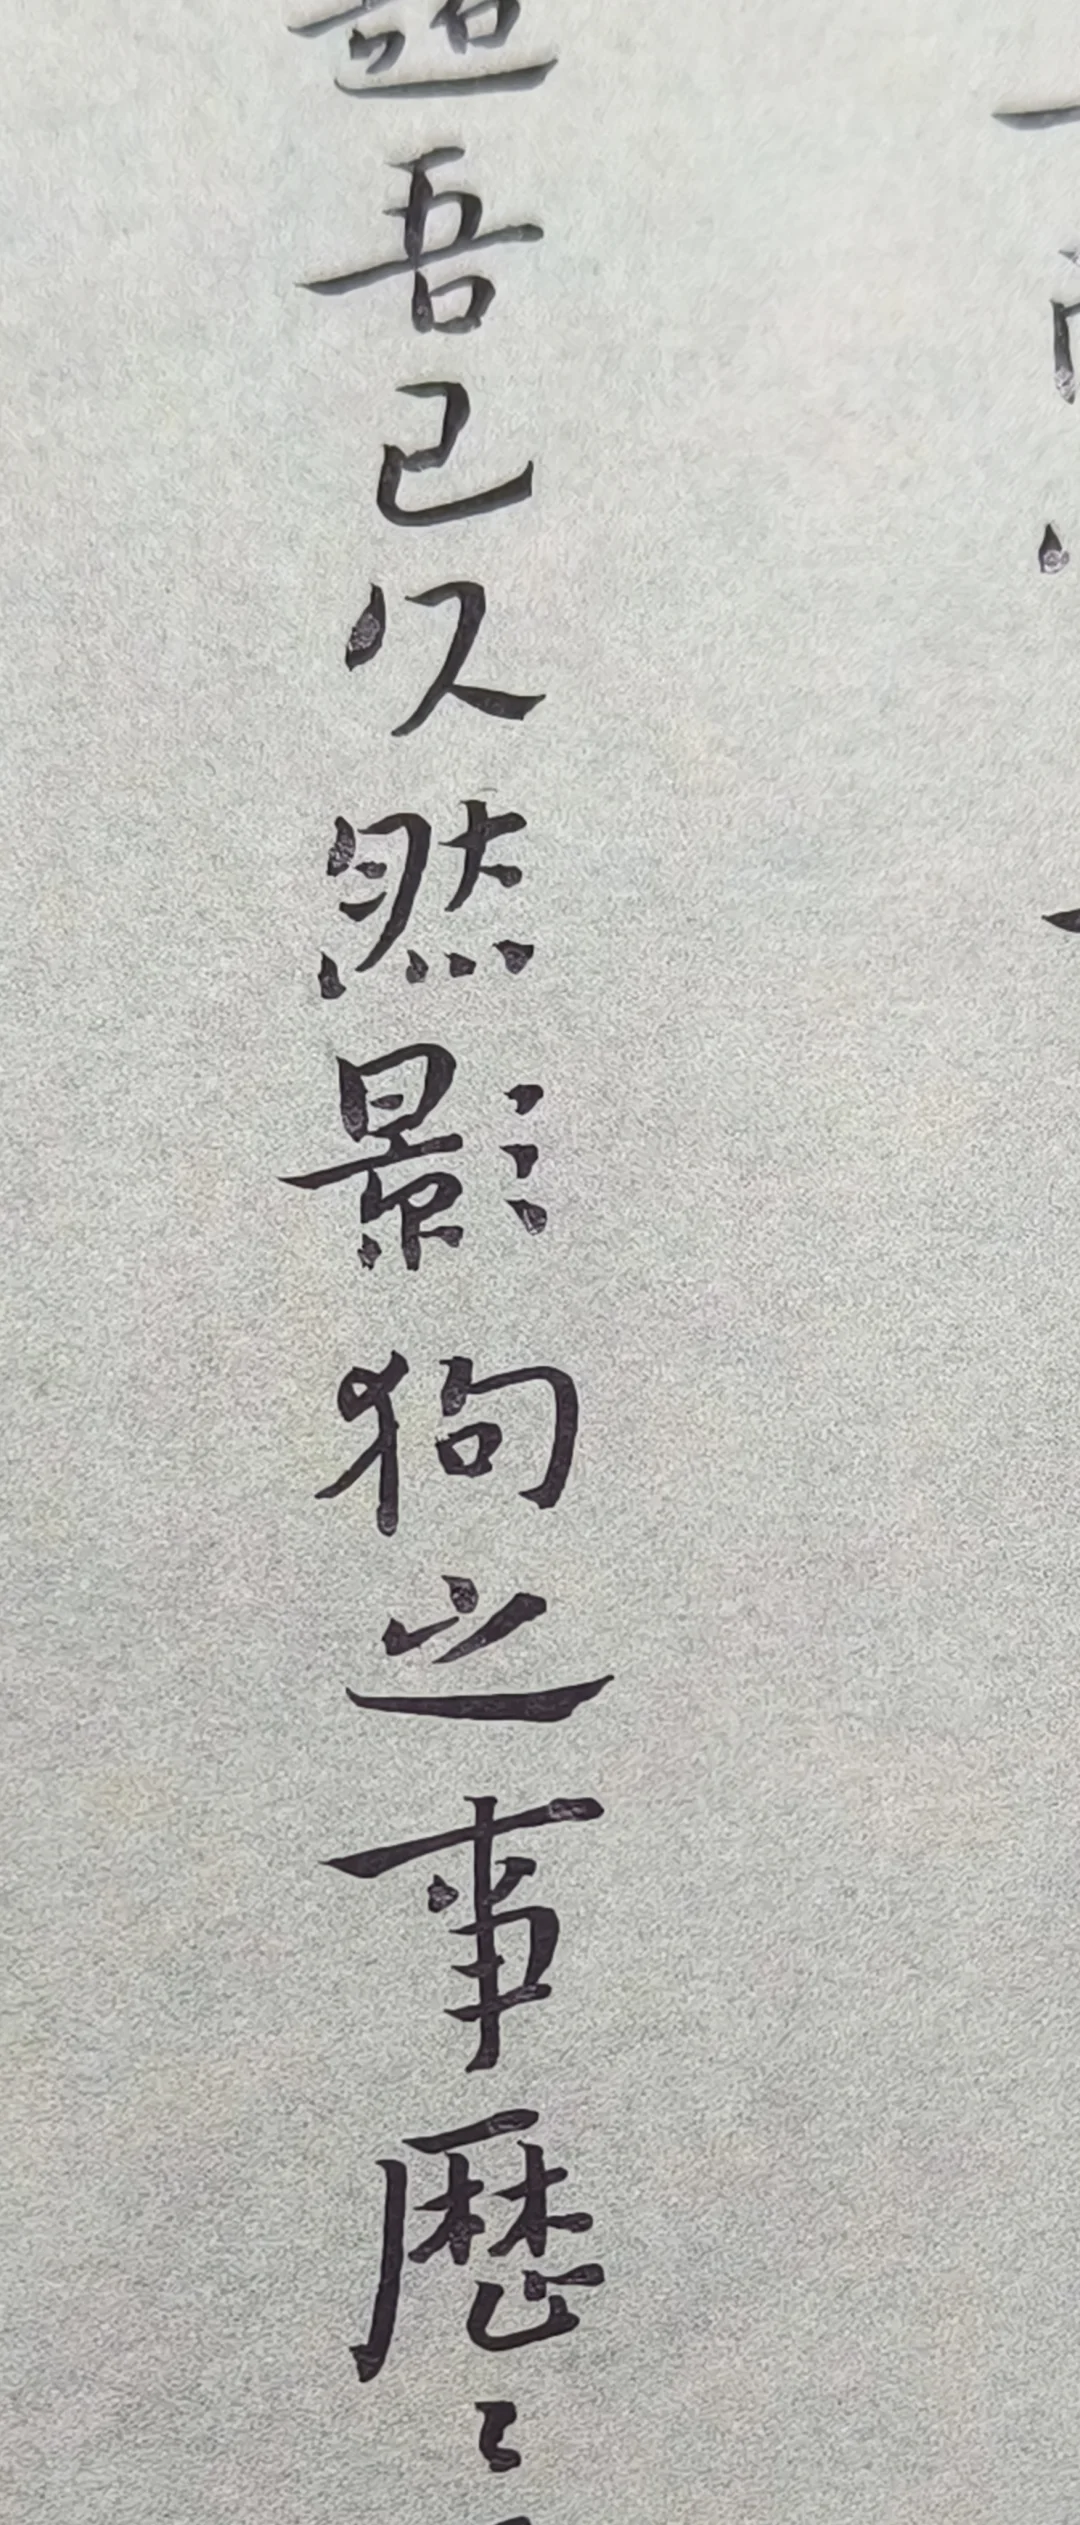 吾已久然影狗之事歷々